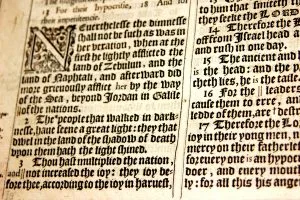 1 For their hypocrisie, 18 And for
their impenitencie.
Neuerthelesse the dimnesse
shall not be such as was in
her vexation, when at the
first he lightly afflicted the
land of Zebulun, and the
land of Naphtali, and afterward did
more grieuously afflict her by the way
of the Sea, beyond Jordan in Galile
of the nations.
2 The people that walked in dark-
nesse, haue seene a great light: they that
dwel in the land of the shadow of death,
vpon them hath the light shined.
3 Thou hast multiplied the nation,
and || not increased the ioy: they ioy be-
fore thee, according to the ioy in haruest,
to him that smiteth
they seeke the LORD
14 Therefore the
off from Israel head a
and rush in one day.
15 The ancient and
is the head: and the p
cheth lies, he is the
16 For || the leaders
cause them to erre, and
ledde of them, are
17 Therefore the LORD
ioy in their yong men, n
mercy on their fatherless
for euery one is an hypoc
doer, and euery mouth
ly: for all this his anger